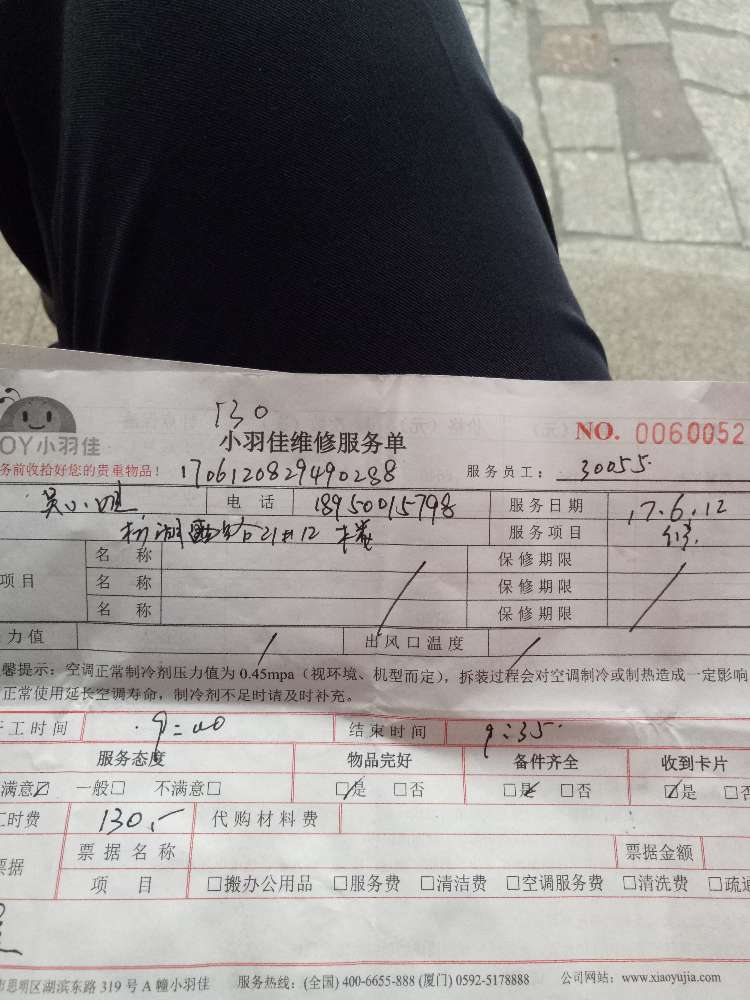 130
OY小羽佳
小羽佳维修服务单
NO. 0060052
务前收拾好您的贵重物品!
1706120829490288
服务员工: 30055
吴小 电话 18950015798 服务日期 17.6.12
湖 21#12 服务项目 修
项目 名称 保修期限
名称 保修期限
名称 保修期限
力值 出风口温度
馨提示:空调正常制冷剂压力值为0.45mpa(视环境、机型而定),拆装过程会对空调制冷或制热造成一定影响
正常使用延长空调寿命,制冷剂不足时请及时补充。
工时间 9:00 结束时间 9:35
服务态度 物品完好 备件齐全 收到卡片
满意☑ 一般□ 不满意□ ☑是 □否 ☑是 □否 ☑是 □否
工时费 130.- 代购材料费
票据 票据名称 票据金额
项目 □搬办公用品 □服务费 □清洁费 □空调服务费 □清洗费 □疏通
市思明区湖滨东路 319 号 A 幢小羽佳 服务热线:(全国) 400-6655-888 (厦门) 0592-5178888 公司网站:www.xiaoyujia.com